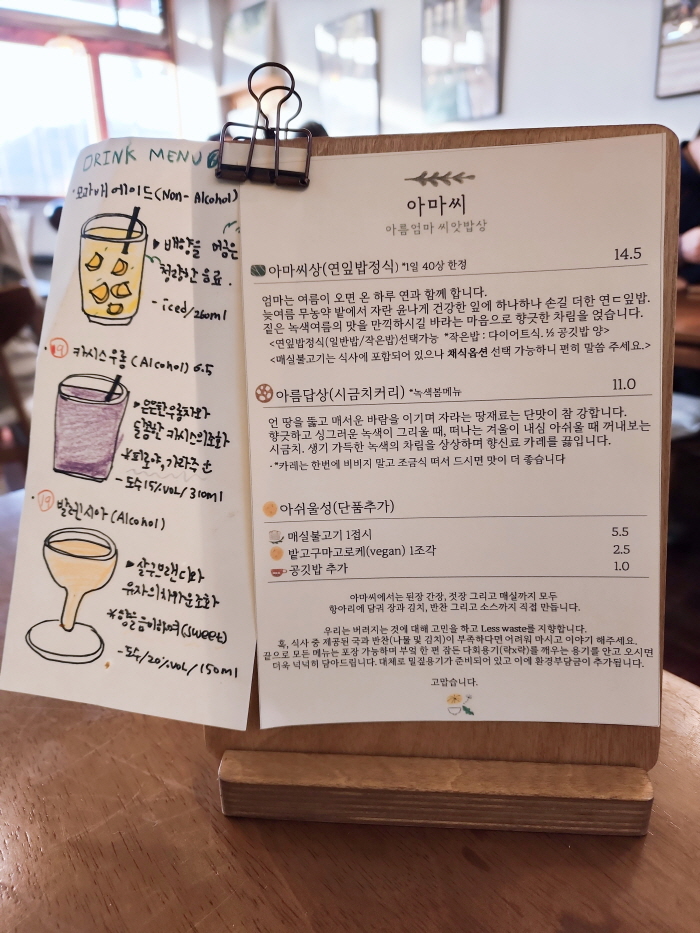 DRINK MENU
모과배 에이드(Non-Alcohol)
▶ 배향을 머금은
청량한 음료.
- iced/260ml
19 카시스우롱 (Alcohol) 6.5
▶ 은은한 우롱차와
달콤한 카시스의 조화
*피로야, 가라주는
- 도수15%vol/310ml
19 발렌시아 (Alcohol)
▶ 살구브랜디와
유자의 차가운 조화
*향을 음미하며(sweet)
- 도수/20%vol/150ml
아마씨
아름엄마 씨앗밥상
아마씨상(연잎밥정식) *1일 40상 한정 14.5
엄마는 여름이 오면 온 하루 연과 함께 합니다.
늦여름 무농약 밭에서 자란 윤나게 건강한 잎에 하나하나 손길 더한 연ㄷ잎밥.
짙은 녹색여름의 맛을 만끽하시길 바라는 마음으로 향긋한 차림을 얹습니다.
<연잎밥정식(일반밥/작은밥)선택가능 *작은밥 : 다이어트식. ½ 공깃밥 양>
<매실불고기는 식사에 포함되어 있으나 채식옵션 선택 가능하니 편히 말씀 주세요.>
아름답상(시금치커리) *녹색봄메뉴 11.0
언 땅을 뚫고 매서운 바람을 이기며 자라는 땅재료는 단맛이 참 강합니다.
향긋하고 싱그러운 녹색이 그리울 때, 떠나는 겨울이 내심 아쉬울 때 꺼내보는
시금치. 생기 가득한 녹색의 차림을 상상하며 향신료 카레를 끓입니다.
*카레는 한번에 비비지 말고 조금씩 떠서 드시면 맛이 더 좋습니다
아쉬울성(단품추가)
매실불고기 1접시 5.5
밭고구마고로케(vegan) 1조각 2.5
공깃밥 추가 1.0
아마씨에서는 된장 간장, 젓장 그리고 매실까지 모두
항아리에 담궈 장과 김치, 반찬 그리고 소스까지 직접 만듭니다.
우리는 버려지는 것에 대해 고민을 하고 Less waste를 지향합니다.
혹, 식사 중 제공된 국과 반찬(나물 및 김치)이 부족하다면 어려워 마시고 이야기 해주세요.
끝으로 모든 메뉴는 포장 가능하며 부엌 한 편 잠든 다회용기(락x락)를 깨우는 용기를 안고 오시면
더욱 넉넉히 담아드립니다. 대체로 밀짚용기가 준비되어 있고 이에 환경부담금이 추가됩니다.
고맙습니다.